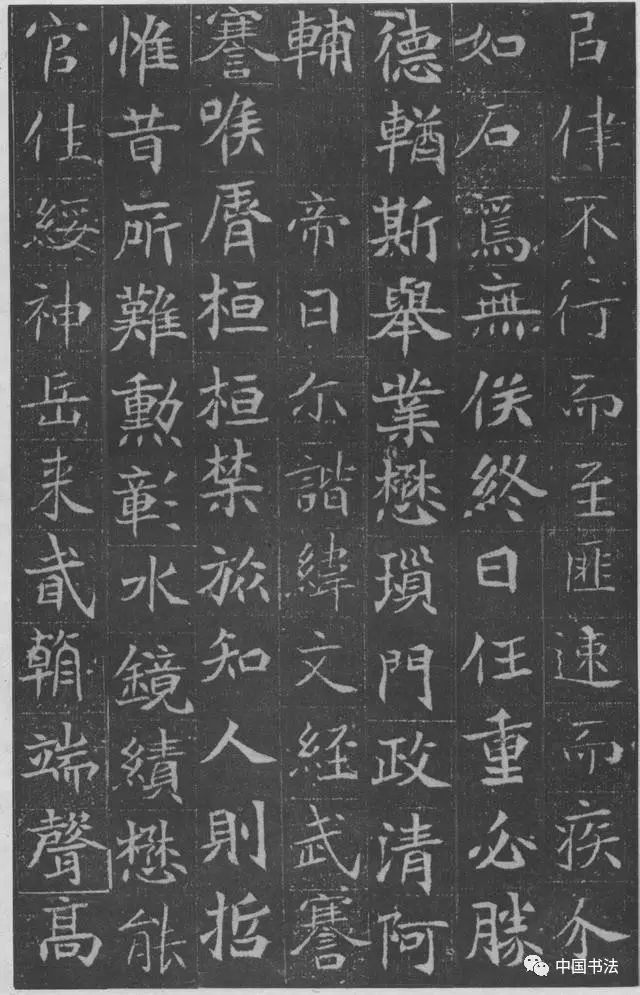 㠯律不行而至匪速而疾介
如石焉無俟終日任重必勝
德輶斯舉業懋瑣門政清阿
輔帝曰尔諧緯文經武謇
謇喉脣桓桓禁旅知人則哲
惟昔所難勳彰水鏡績懋能
官任綏神岳来貳朝端聲高
中国书法